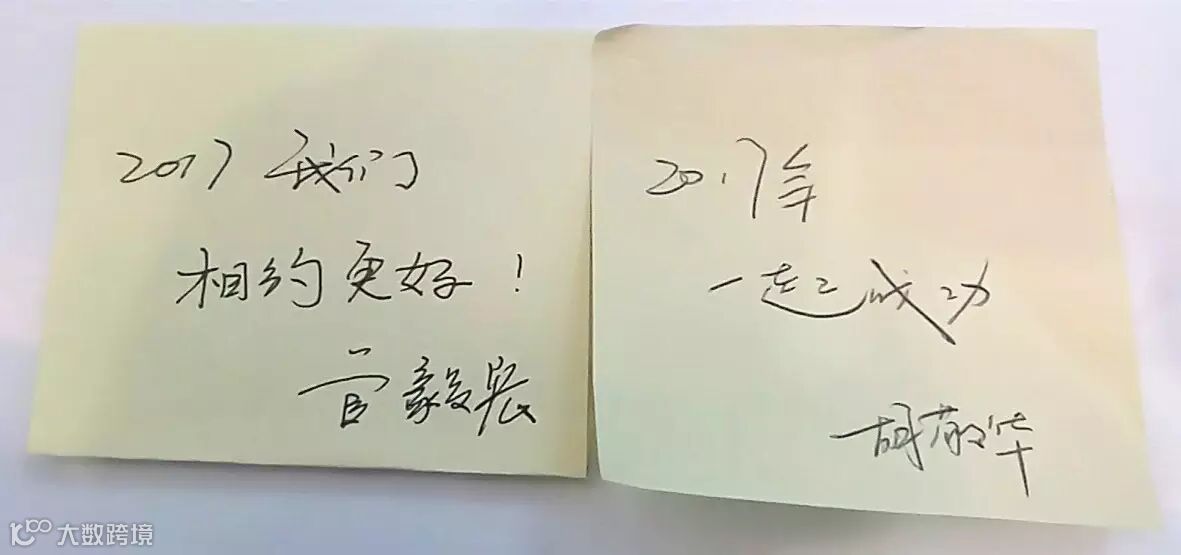 2017我们
相约更好！
官毅宸
2017年
一起成功
胡敬华
大数跨境